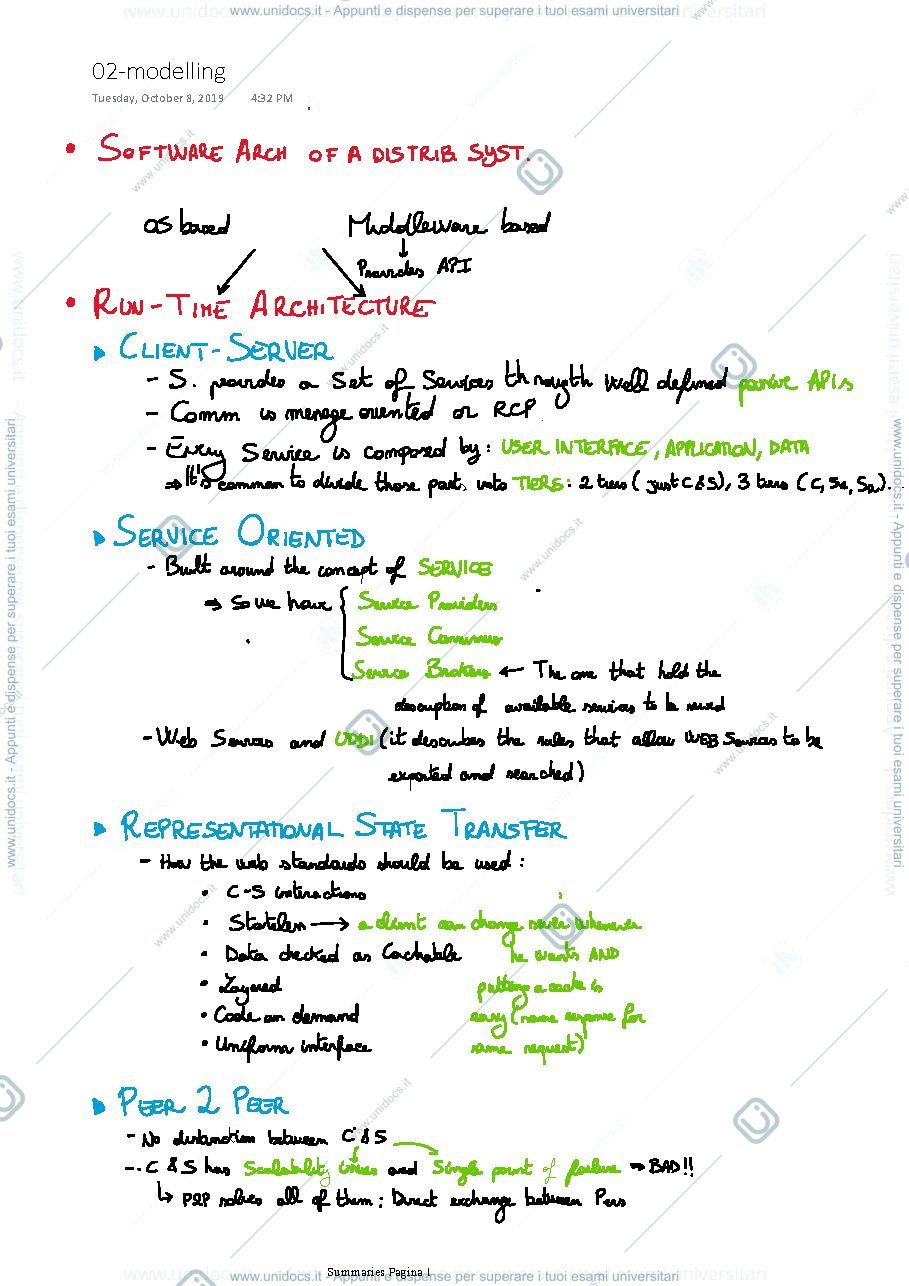 www.unidocs.it - Appunti e dispense per superare i tuoi esami universitari
02-modelling
Tuesday, October 8, 2019 4:32 PM
• SOFTWARE ARCH OF A DISTRIB SYST.
OS based Middleware based
Provides API
• RUN-TIME ARCHITECTURE
CLIENT-SERVER
- S. provides a set of Services through well defined passive APIs
- Comm is message oriented or RCP
- Every Service is composed by: USER INTERFACE, APPLICATION, DATA
⇒ It's common to divide those parts into TIERS: 2 tiers (just C&S), 3 tiers (C, S₁, S₂).
SERVICE ORIENTED
- Built around the concept of SERVICE
⇒ So we have { Service Providers
Service Consumers
Service Brokers ← The one that hold the
description of available services to be used
- Web Services and UDDI (it describes the rules that allow WEB Services to be
exported and searched)
REPRESENTATIONAL STATE TRANSFER
- How the web standards should be used:
• C-S interactions
• Stateless → a client can change server whenever
• Data checked as Cachable he wants AND
• Layered putting a cache is
• Code on demand easy (same response for
• Uniform interface same request)
PEER 2 PEER
- No distinction between C&S
- C&S has Scalability issues and Single point of failure ⇒ BAD!!
↳ P2P solves all of them: Direct exchange between Peers
Summaries Pagina 1
www.unidocs.it - Appunti e dispense per superare i tuoi esami universitari